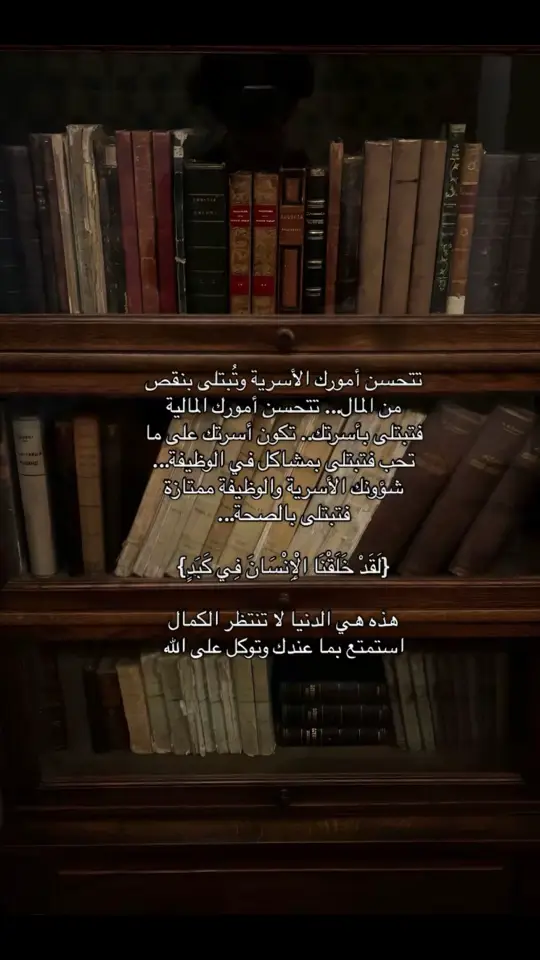 تتحسن أمورك الأسرية وتُبتلى بنقص
من المال... تتحسن أمورك المالية
فتبتلى بأسرتك.. تكون أسرتك على ما
تحب فتبتلى بمشاكل في الوظيفة...
شؤونك الأسرية والوظيفة ممتازة
فتبتلى بالصحة...
{لَقَدْ خَلَقْنَا الْإِنْسَانَ فِي كَبَدٍ}
هذه هي الدنيا لا تنتظر الكمال
استمتع بما عندك وتوكل على الله